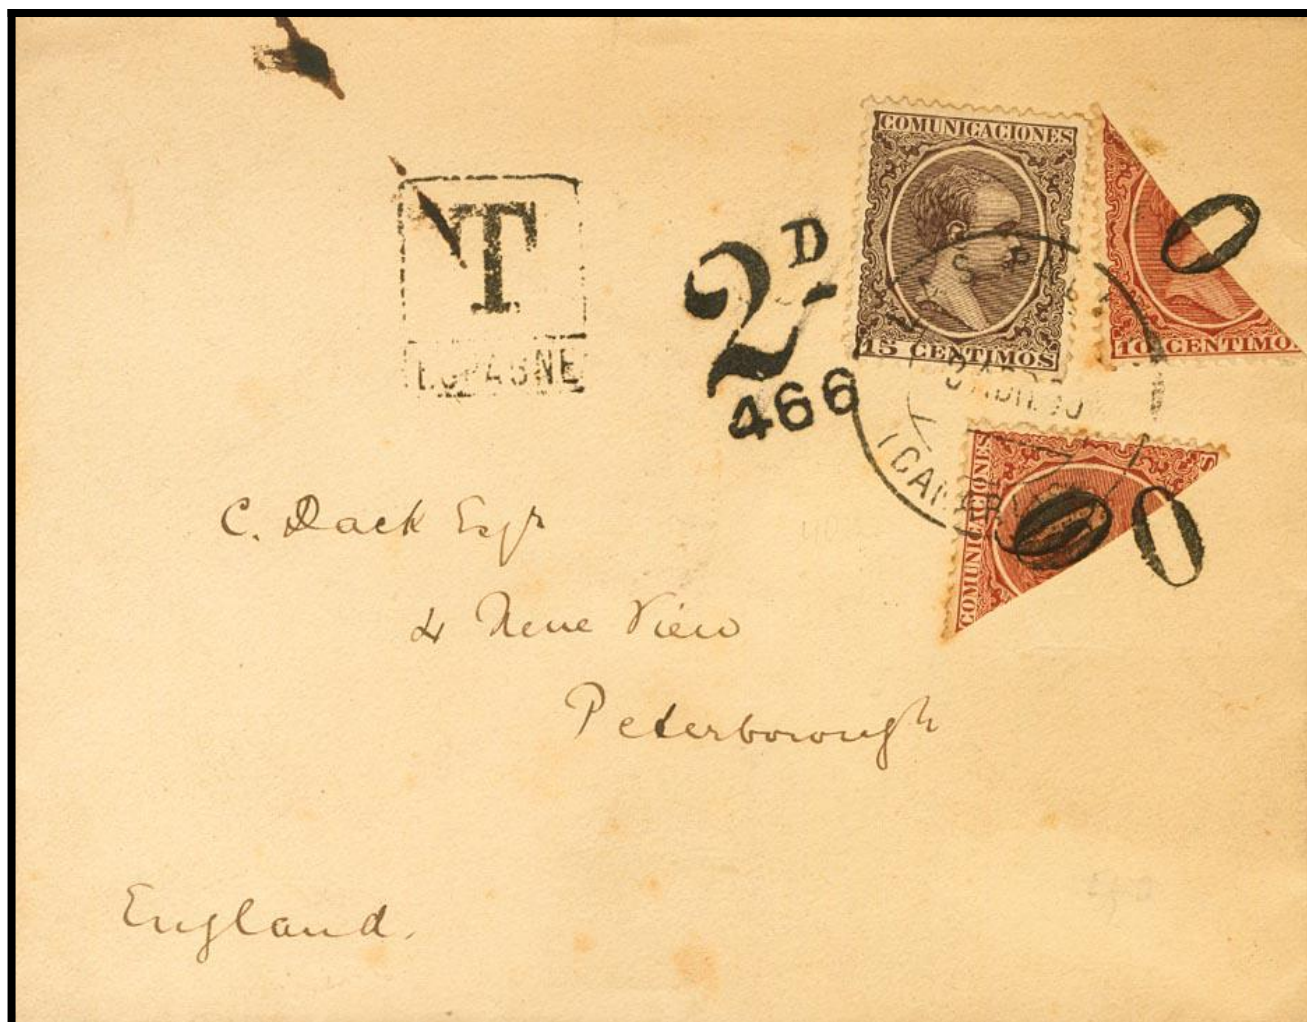 T
ESPAGNE
2D
466
COMUNICACIONES
15 CENTIMOS
10 CENTIMO
0
COMUNICACIONES
0
0
C. Dack Esqr
4 Nene View
Peterborough
England.